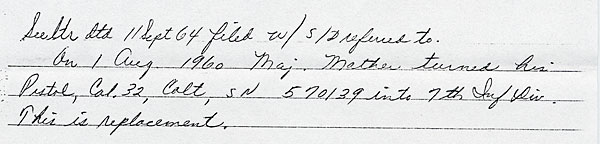 See ltr dtd 11 Sept 64 filed w/ S/D referred to.
On 1 Aug 1960 Maj. Mather turned his
Pistol, Cal. 32, Colt, SN 570139 into 7th Inf Div.
This is replacement.